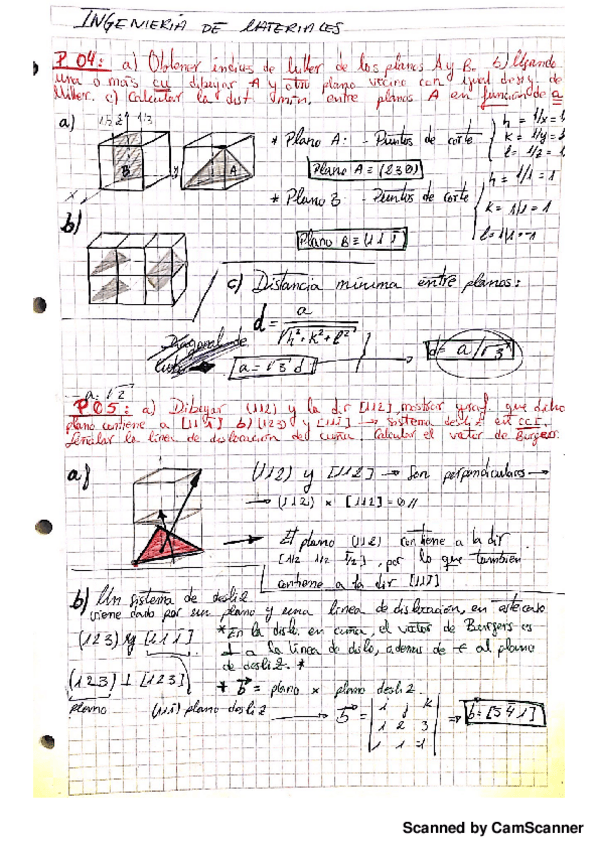 INGENIERIA DE MATERIALES
P04: a) Obtener índices de Miller de los planos A y B. b) Usando
una o más cu dibujar A y otro plano vecino con igual desig. de
Miller. c) Calcular la dist mín. entre planos A en función de a
a)
1/3 2/3
* Plano A: - Puntos de corte
h = 1/x = 1
k = 1/y = 1
l = 1/z = 1
B
A
y
x
Plano A ≡ (230)
* Plano B - Puntos de corte
h = 1/1 = 1
k = 1/1 = 1
l = 1/-1 = -1
Plano B ≡ (111̄)
b)
c) Distancia mínima entre planos:
d = a / √h²+k²+l²
Diagonal de
cubo
a = √3 d
d = a/√3
a = √2
P05: a) Dibujar (112) y la dir [112], mostrar graf. que dicho
plano contiene a [111̄] b) (123) y [111̄] → sistema desliz en CCI.
Señalar la línea de dislocación de cuña. Calcular el vector de Burgers.
a)
(112) y [112] → Son perpendiculares →
→ (112) × [112] = 0 //
→ El plano (112) contiene a la dir
[1/2 1/2 1̄/2], por lo que también
contiene a la dir [111̄]
b) Un sistema de desliz
viene dado por un plano y una línea de dislocación, en este caso
(123) y [111̄]
* En la dislo. en cuña, el vector de Burgers es
⊥ a la línea de dislo, además de ∈ al plano
de desliz. *
(123) ⊥ [123]
* b = plano × plano desliz
plano
(111̄) plano desliz
b = | i j k
1 2 3
1 1 -1 | ⇒ b = [5̄41̄]
Scanned by CamScanner